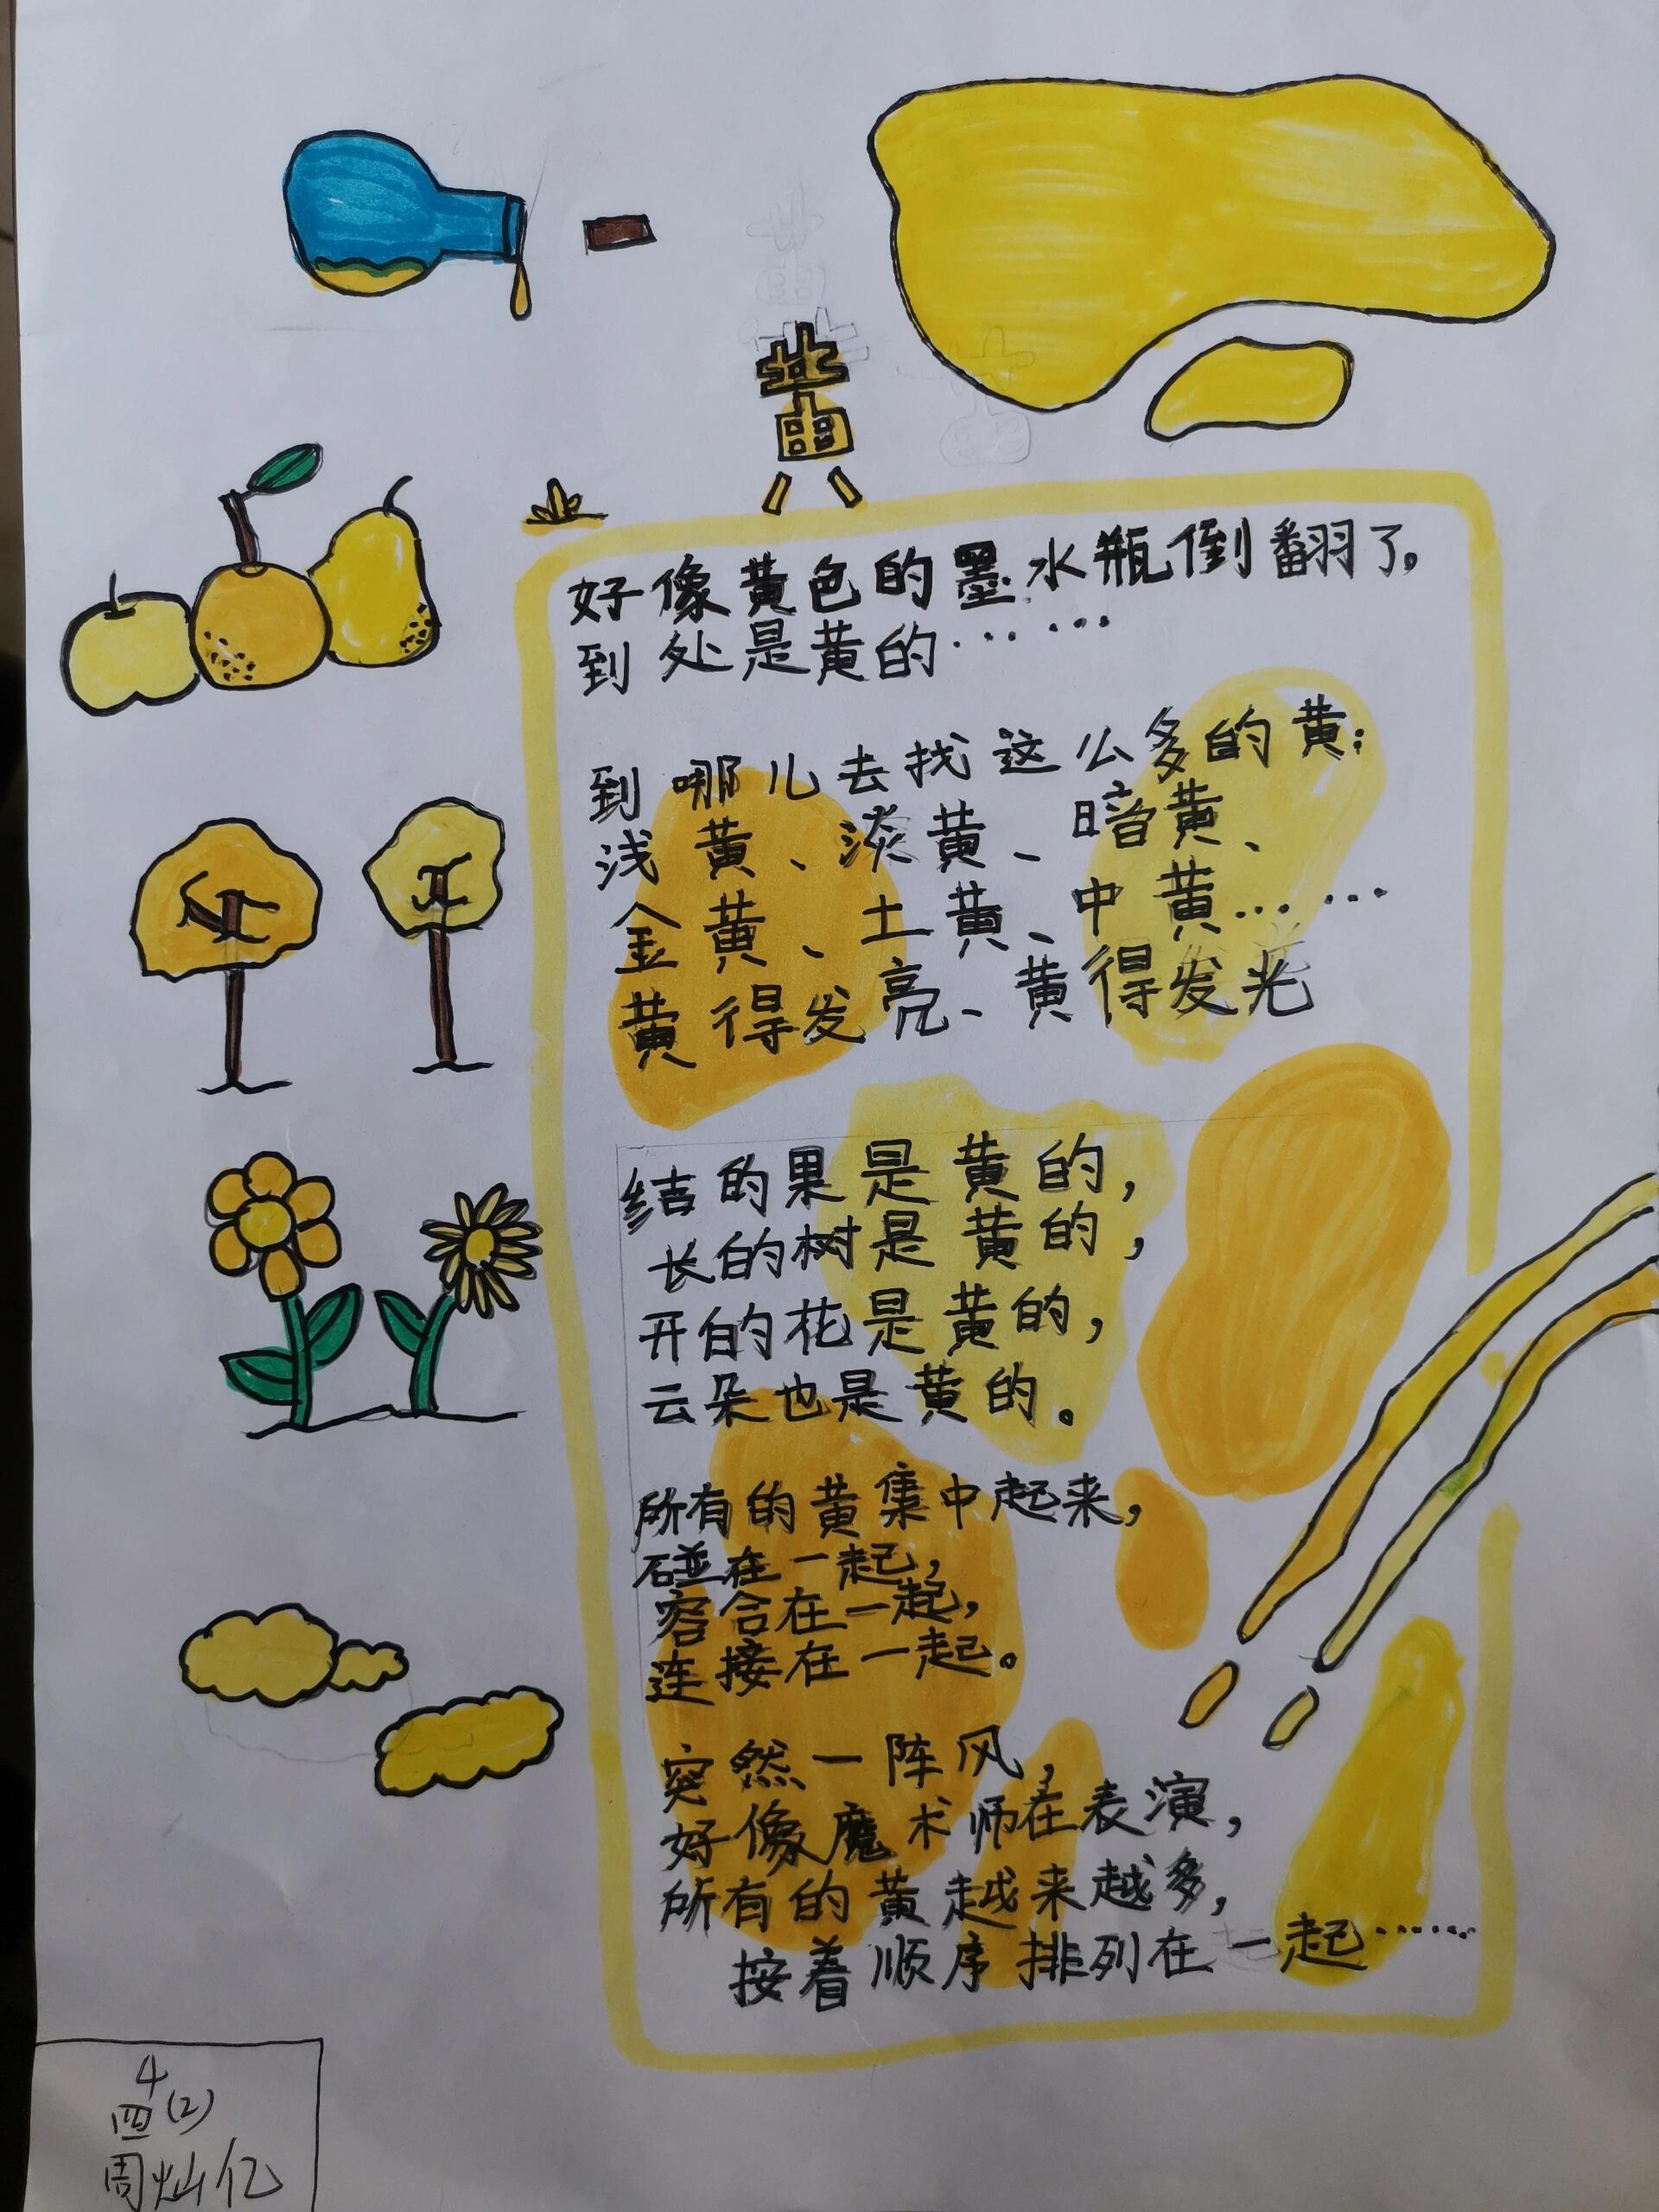 黄
好像黄色的墨水瓶倒翻了。
到处是黄的……
到哪儿去找这么多的黄：
浅黄、淡黄、暗黄、
金黄、土黄、中黄……
黄得发亮、黄得发光
结的果是黄的，
长的树是黄的，
开的花是黄的，
云朵也是黄的。
所有的黄集中起来，
碰在一起，
容合在一起，
连接在一起。
突然一阵风，
好像魔术师在表演，
所有的黄越来越多，
按着顺序排列在一起……
4
四(2)
周灿亿